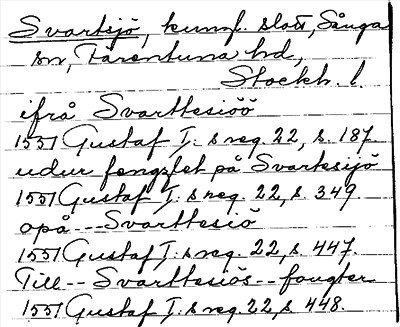 Svartsjö, kungl. slott, Sånga
sn, Färentuna hd,
Stockh. l.
ifrå Svarttesiöö
1551 Gustaf I:s reg. 22, s. 187
udur fengzlet på Svartesijö
1551 Gustaf I:s reg. 22, s. 349.
opå --- Svarttesiö
1551 Gustaf I:s reg. 22, s. 447.
Till -- Svarttesiös -- fougter
1551 Gustaf I:s reg. 22, s. 448.